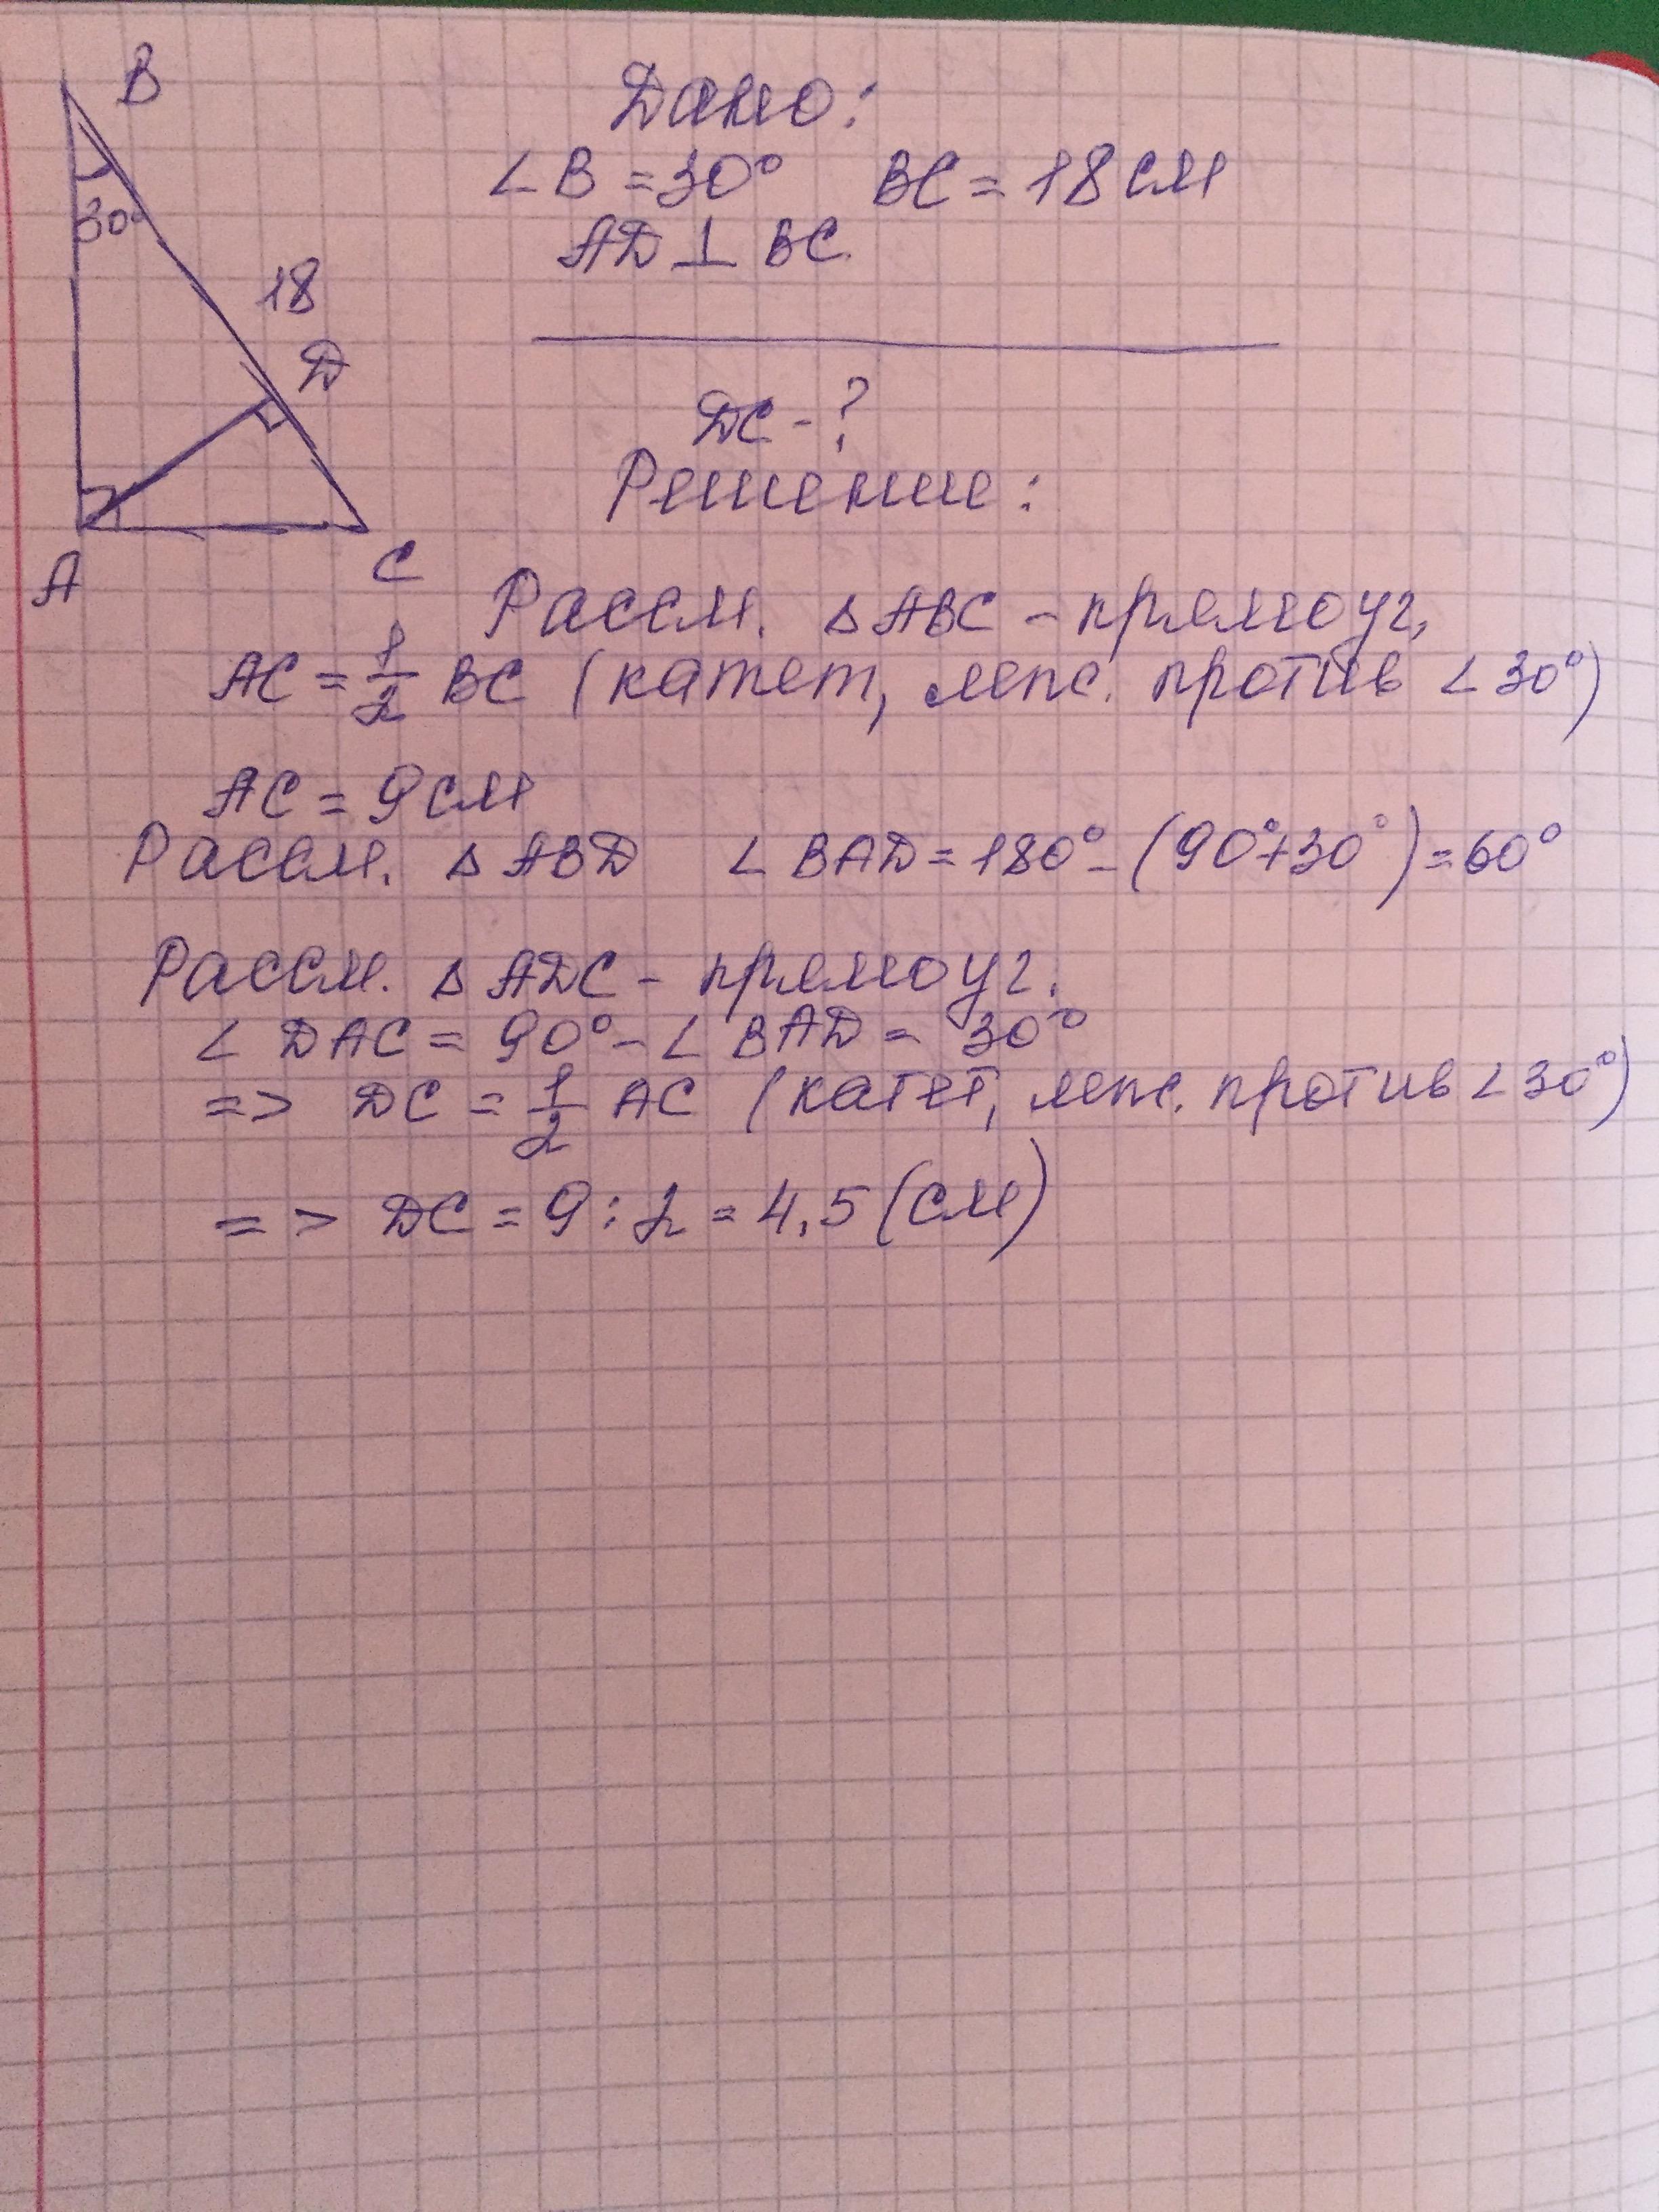 B
30°
18
D
A
C
Дано:
∠B = 30° BC = 18 см
AD ⊥ BC.
DC - ?
Решение:
Рассм. △ABC - прямоуг,
AC = 1/2 BC (катет, леж. против ∠30°)
AC = 9 см
Рассм. △ABD ∠BAD = 180° - (90°+30°) = 60°
Рассм. △ADC - прямоуг.
∠DAC = 90° - ∠BAD = 30°
=> DC = 1/2 AC (катет, леж. против ∠30°)
=> DC = 9 : 2 = 4,5 (см)